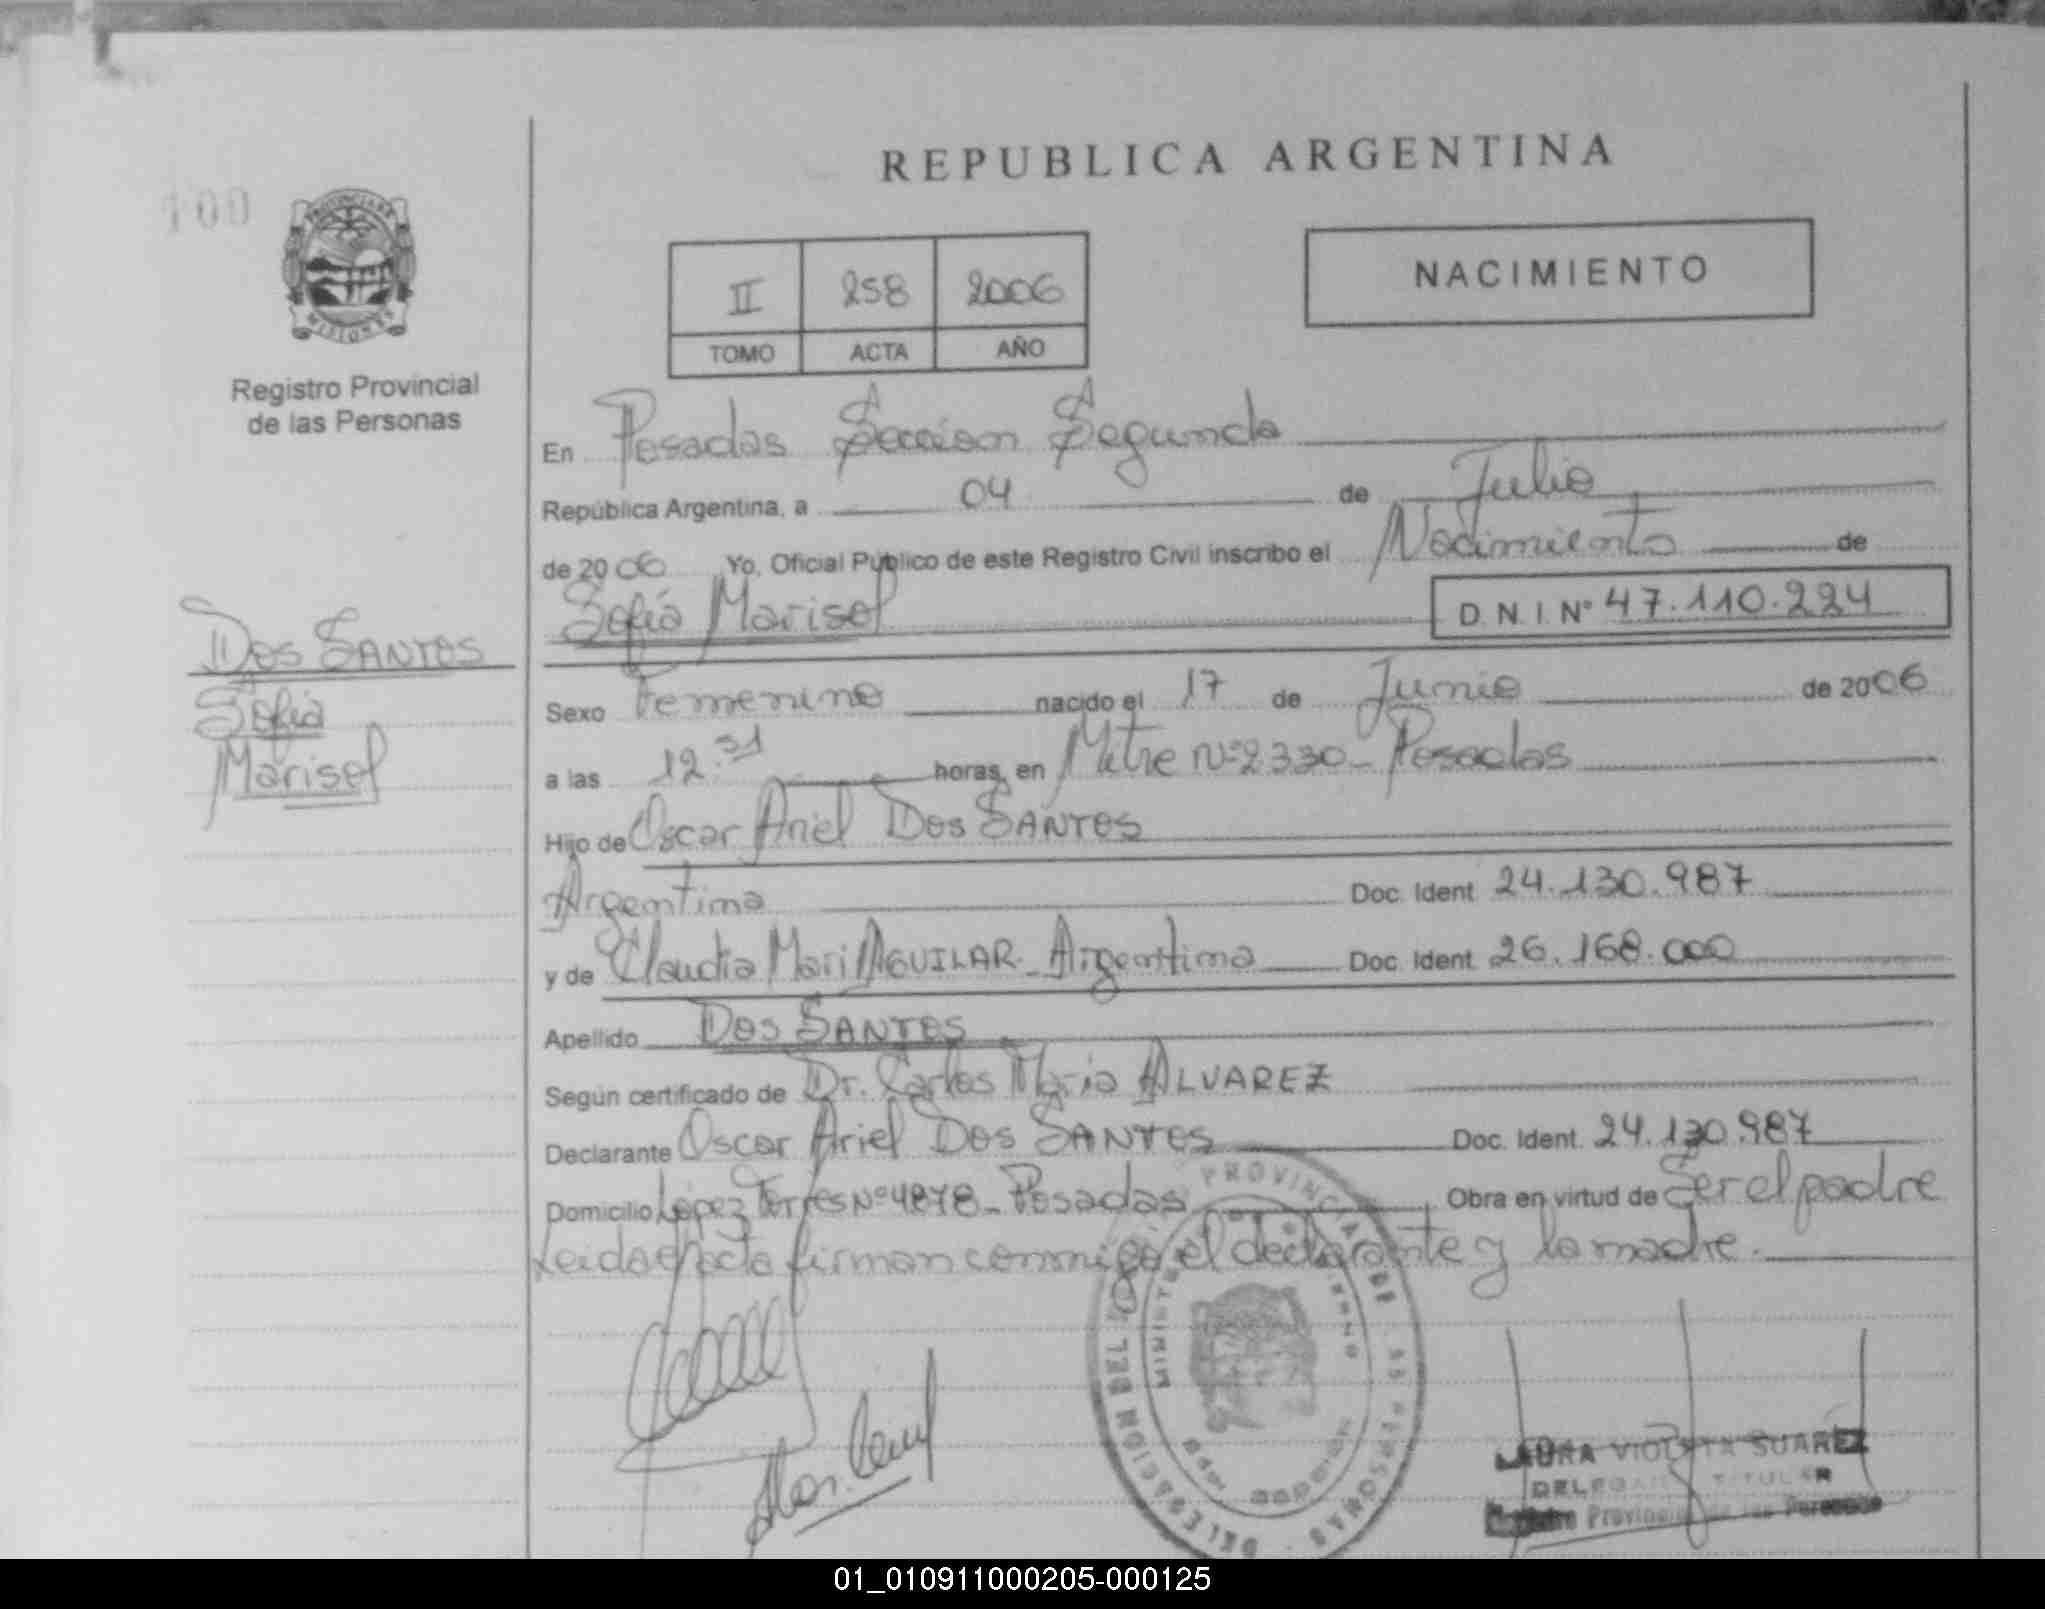 REPUBLICA ARGENTINA
100
PROVINCIA DE
MISIONES
Registro Provincial
de las Personas
II 258 2006
TOMO ACTA AÑO
NACIMIENTO
En Posadas Seccion Segunda
República Argentina, a 04 de Julio
de 2006 Yo, Oficial Público de este Registro Civil inscribo el Nacimiento de
Sofia Marisel D.N.I. Nº 47.110.224
DOS SANTOS
Sofia
Marisel
Sexo Femenino nacido el 17 de Junio de 2006
a las 12.31 horas, en Mitre Nº 2330 - Posadas
Hijo de Oscar Ariel DOS SANTOS
Argentina Doc. Ident 24.130.987
y de Claudia Mari AGUILAR - Argentina Doc. Ident. 26.168.000
Apellido DOS SANTOS
Según certificado de Dr. Carlos Maria ALVAREZ
Declarante Oscar Ariel DOS SANTOS Doc. Ident. 24.130.987
Domicilio López Torres Nº 4878 - Posadas Obra en virtud de Ser el padre
Leida el acta firman conmigo el declarante y la madre.
LAURA VIOLETA SUAREZ
DELEGADA TITULAR
Registro Provincial de las Personas
01_010911000205-000125